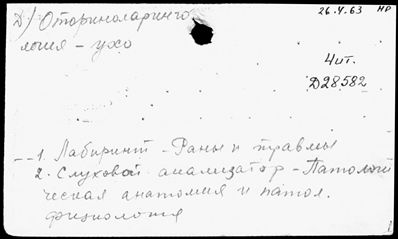 Д) Оториноларинго
26.4.63 НР
логия - ухо
Чит.
D28582
1. Лабиринт - Раны и травмы
2. Слуховой анализатор - Патологи
ческая анатомия и патол.
физиология